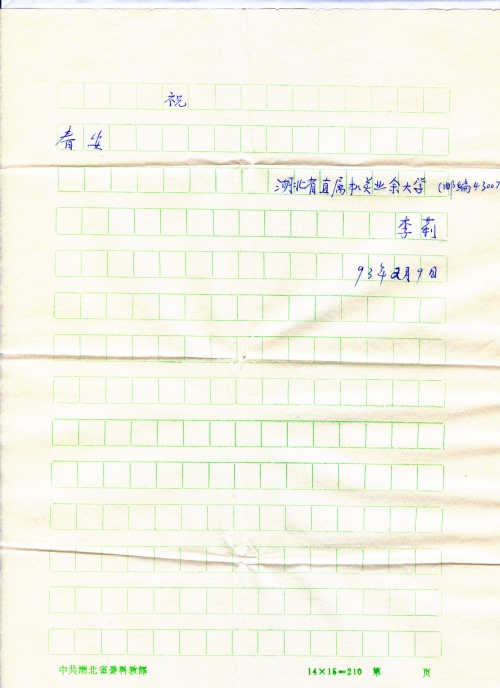 祝
春安
湖北省直属机关业余大学 (邮编43007
李莉
93年2月9日
中共湖北省委科教部 14×15=210 第 页